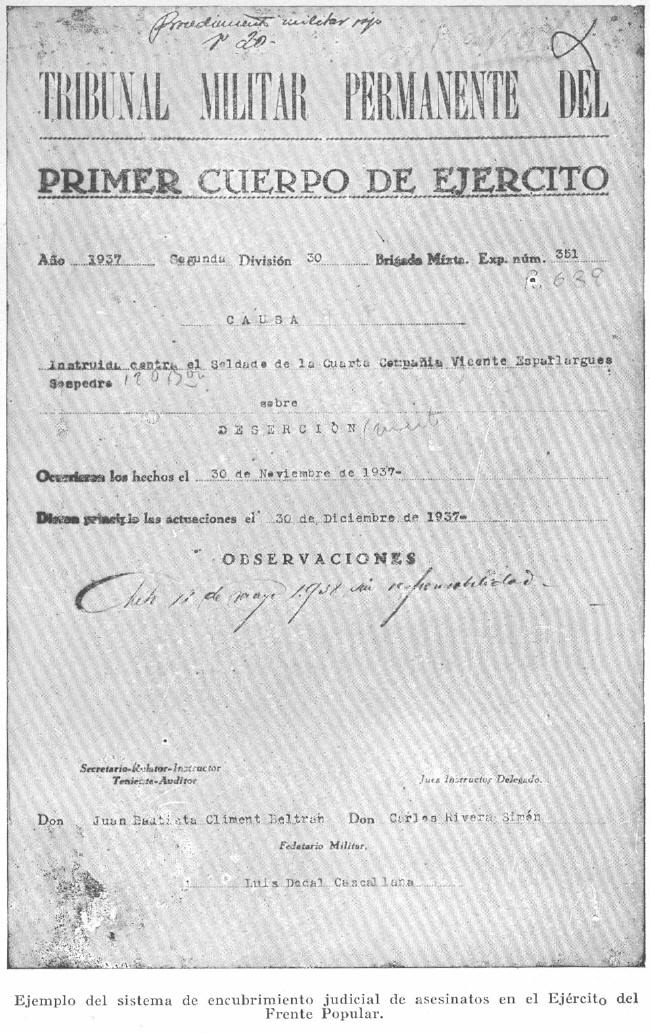 Procedimiento militar rojo
nº 20.-
TRIBUNAL MILITAR PERMANENTE DEL
PRIMER CUERPO DE EJERCITO
Año 1937 Segunda División 30 Brigada Mixta. Exp. núm. 351
639
CAUSA
Instruida contra el Soldado de la Cuarta Compañia Vicente Espallargues
Sospedra
sobre
DESERCIÓN
Ocurrieron los hechos el 30 de Noviembre de 1937-
Dieron principio las actuaciones el 30 de Diciembre de 1937-
OBSERVACIONES
12 de mayo 1938 sin responsabilidad -
Secretario-Relator-Instructor
Teniente-Auditor
Juez Instructor Delegado.
Don Juan Bautista Climent Beltrán Don Carlos Rivera Simón
Fedatario Militar.
Luis Docal Cascallana
Ejemplo del sistema de encubrimiento judicial de asesinatos en el Ejército del
Frente Popular.